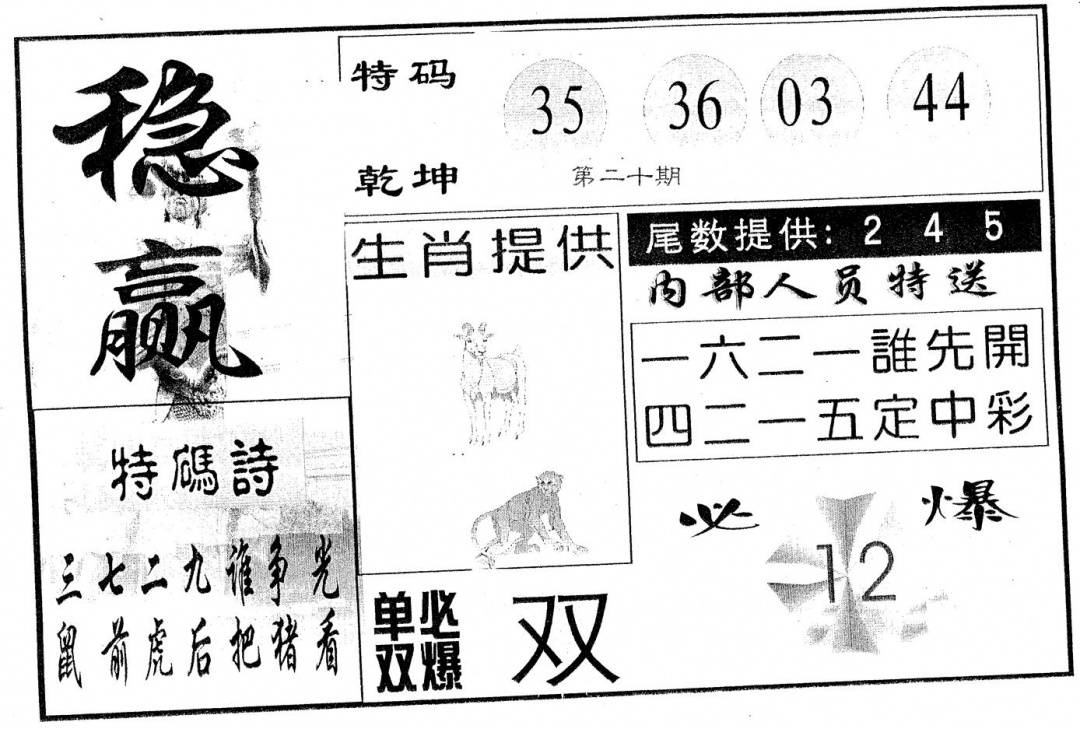 稳赢
特码
35 36 03 44
乾坤
第二十期
生肖提供
尾数提供: 2 4 5
内部人员特送
一六二一誰先開
四二一五定中彩
特碼詩
三七二九谁争光
鼠前虎后把猪看
必爆
12
单双必爆
双